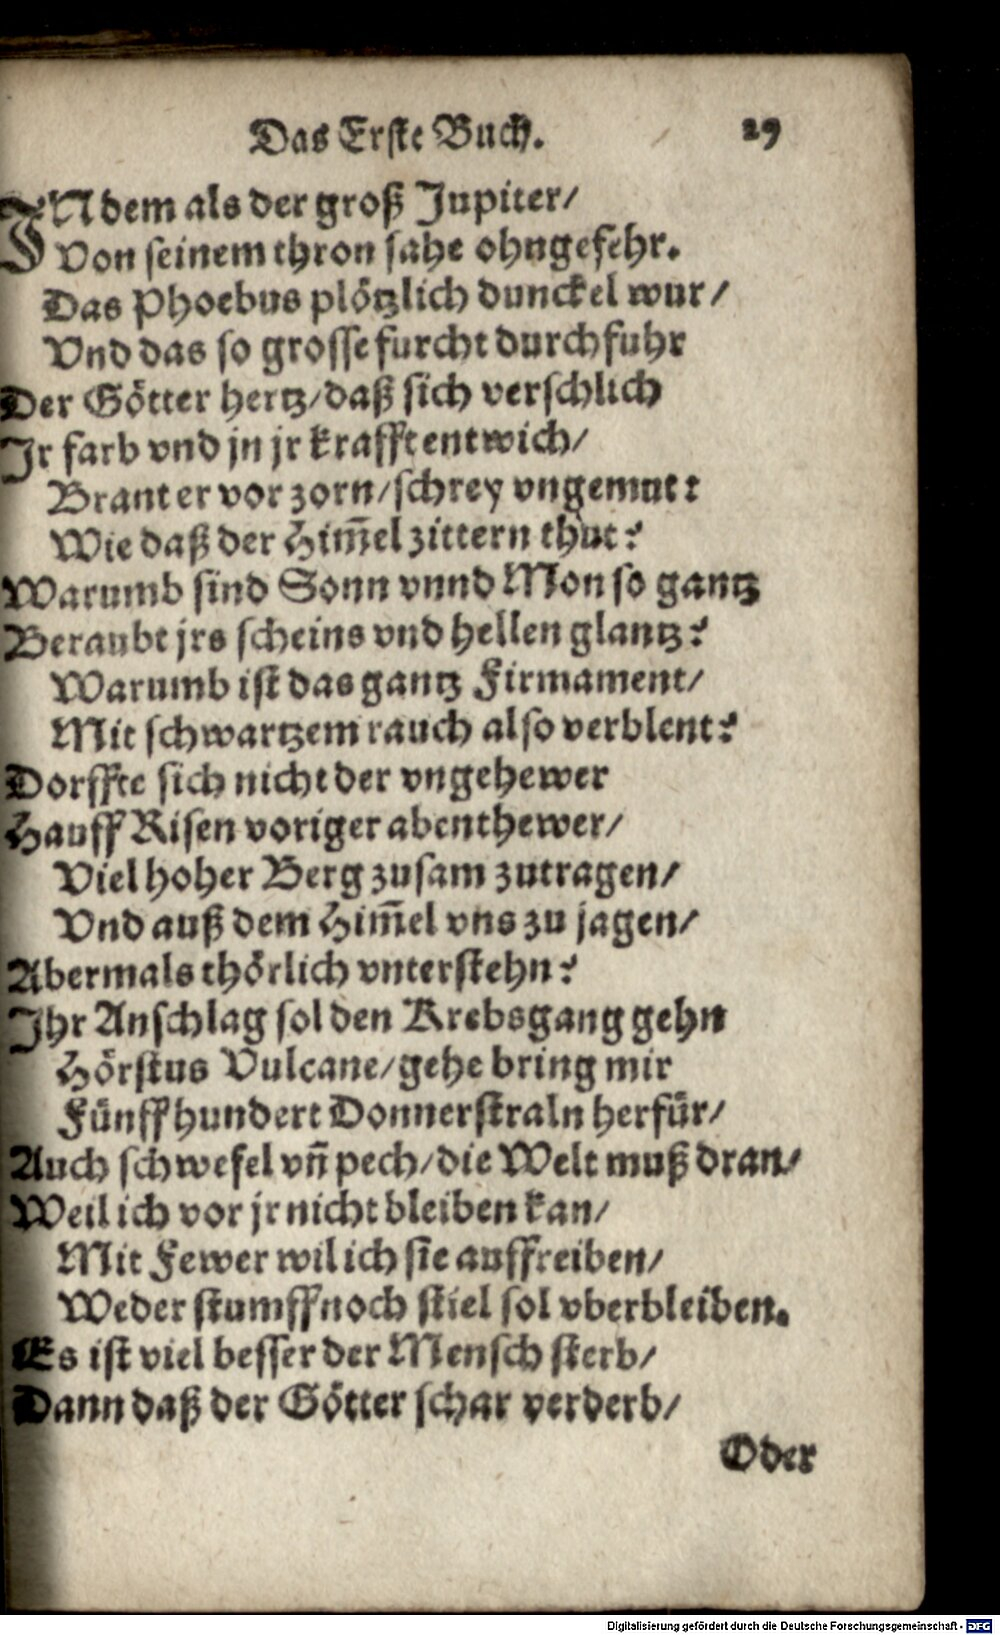 Das Erste Buch. 29
INdem als der groß Jupiter/
Von seinem thron sahe ohngefehr.
Das Phoebus plötzlich dunckel wur/
Vnd das so grosse furcht durchfuhr
Der Götter hertz/daß sich verschlich
Jr farb vnd jn jr krafft entwich/
Brant er vor zorn/schrey vngemut:
Wie daß der Him̃el zittern thut?
Warumb sind Sonn vnnd Mon so gantz
Beraubt jrs scheins vnd hellen glantz?
Warumb ist das gantz Firmament/
Mit schwartzem rauch also verblent?
Dorffte sich nicht der vngehewer
Hauff Risen voriger abenthewer/
Viel hoher Berg zusam zutragen/
Vnd auß dem Him̃el vns zu jagen/
Abermals thörlich vnterstehn?
Jhr Anschlag sol den Krebsgang gehn
Hörstus Vulcane/gehe bring mir
Fünffhundert Donnerstraln herfür/
Auch schwefel vn̄ pech/die Welt muß dran/
Weil ich vor jr nicht bleiben kan/
Mit Fewer wil ich sie auffreiben/
Weder stumff noch stiel sol vberbleiben.
Es ist viel besser der Mensch sterb/
Dann daß der Götter schar verderb/
Oder
Digitalisierung gefördert durch die Deutsche Forschungsgemeinschaft - DFG